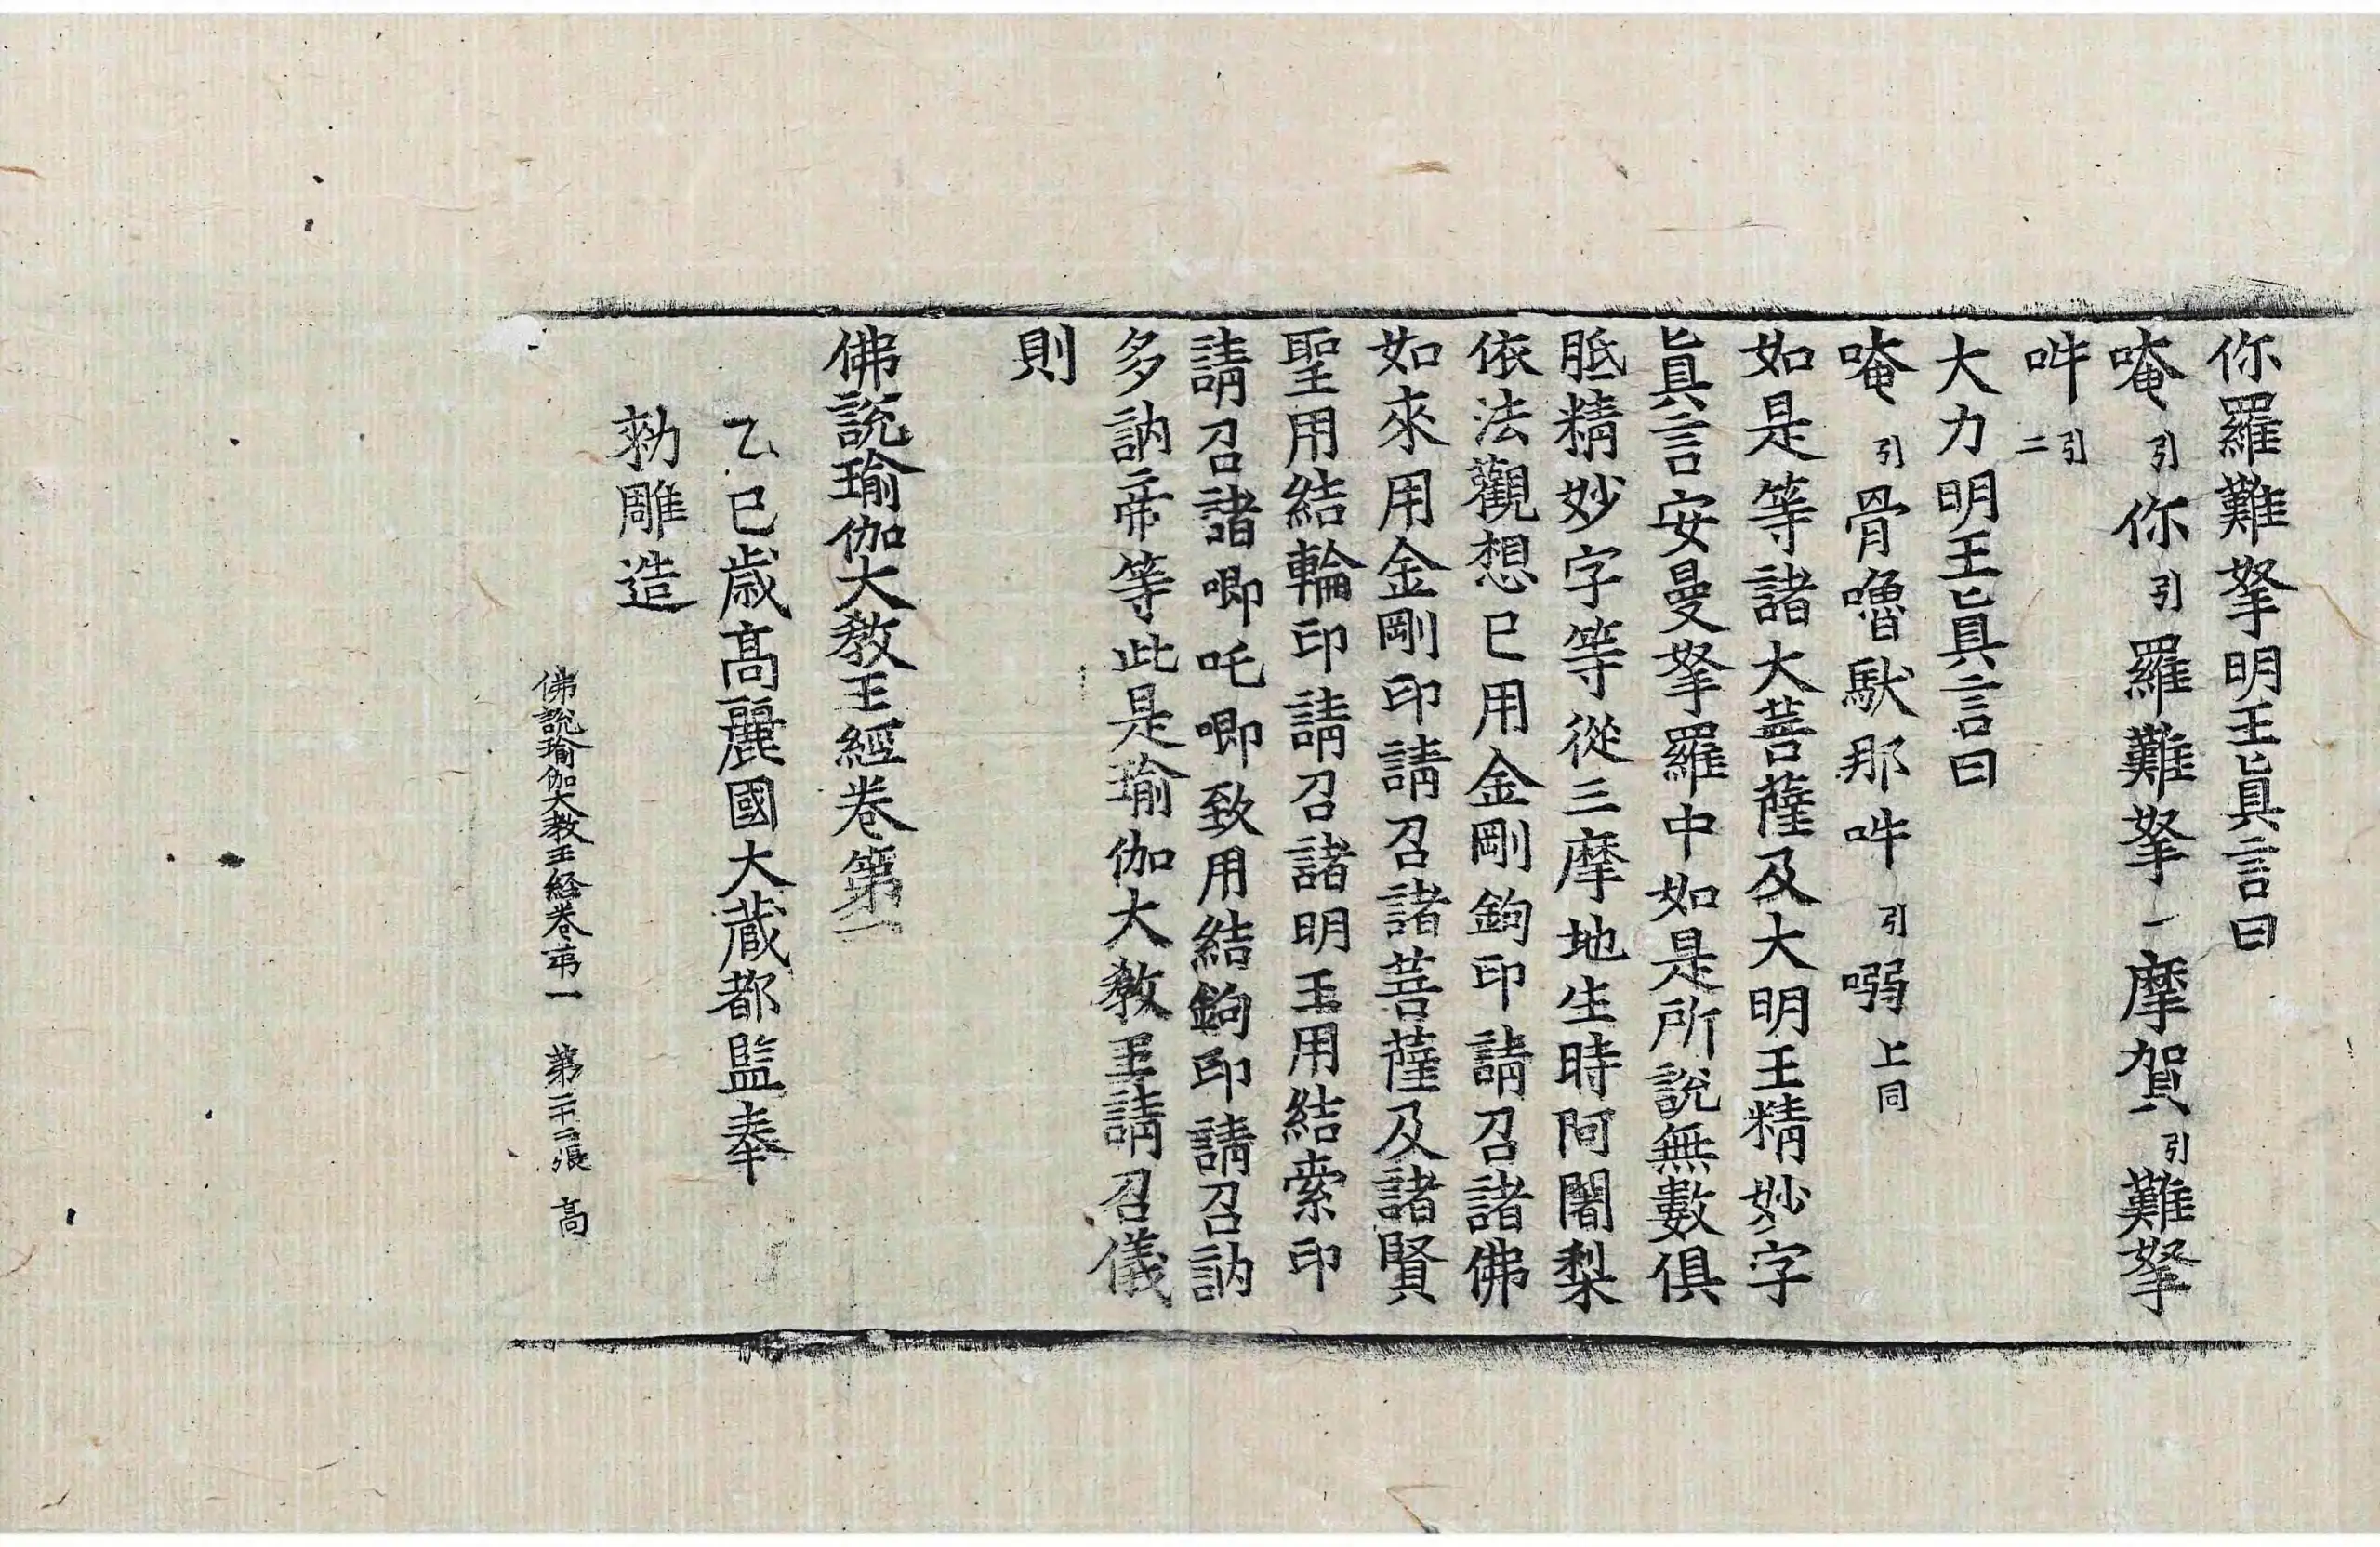 你羅難拏明王眞言曰
唵引你引羅難拏一摩賀引難拏
吽引二
大力明王眞言曰
唵引骨嚕馱那吽引嗗上同
如是等諸大菩薩及大明王精妙字
眞言安曼拏羅中如是所說無數俱
胝精妙字等從三摩地生時阿闍梨
依法觀想已用金剛鉤印請召諸佛
如來用金剛印請召諸菩薩及諸賢
聖用結輪印請召諸明王用結索印
請召諸唧吒唧致用結鉤印請召訥
多訥帝等此是瑜伽大教王請召儀
則
佛說瑜伽大教王經卷第一
乙巳歲高麗國大藏都監奉
勑雕造
佛說瑜伽大教王経卷苐一 第二十二張 高